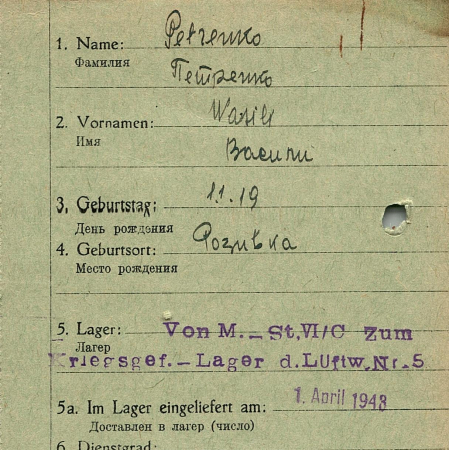 1. Name: Petrenko
Фамилия Петренко
2. Vornamen: Wasili
Имя
Васили
3. Geburtstag: 1.1.19
День рождения
4. Geburtsort: Розивка
Место рождения
5. Lager: Von M.–St.VI/C zum
Лагер
Kriegsgef.–Lager d.Luftw.Nr.5
5a. Im Lager eingeliefert am: 1. April 1943
Доставлен в лагер (число)
6. Dienstgrad: